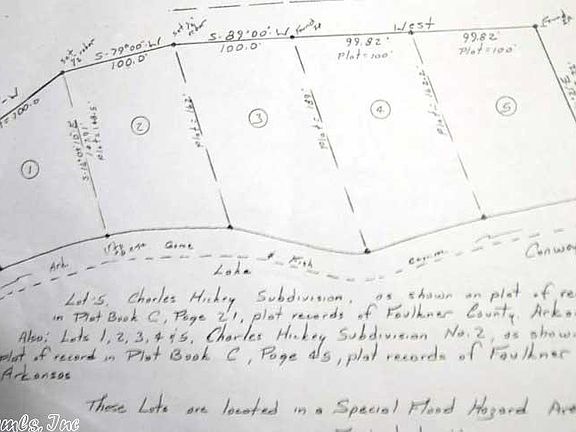 S-79°00'-W
100.0'
S-89°00'-W
100.0'
West
99.82'
Plat=100'
99.82'
Plat=100'
-W
=100.0
1
2
3
4
5
Plat=162'
Plat=189'
Ark. Game
Lake
Fish
Comm.
Conway
Lot 5, Charles Hickey Subdivision, as shown on plat of re
in Plat Book C, Page 21, plat records of Faulkner County, Arka
Also: Lots 1, 2, 3, 4 & 5, Charles Hickey Subdivision No. 2, as show
plat of record in Plat Book C, Page 45, plat records of Faulkner
Arkansas
These Lots are located in a Special Flood Hazard Are
mls, Inc